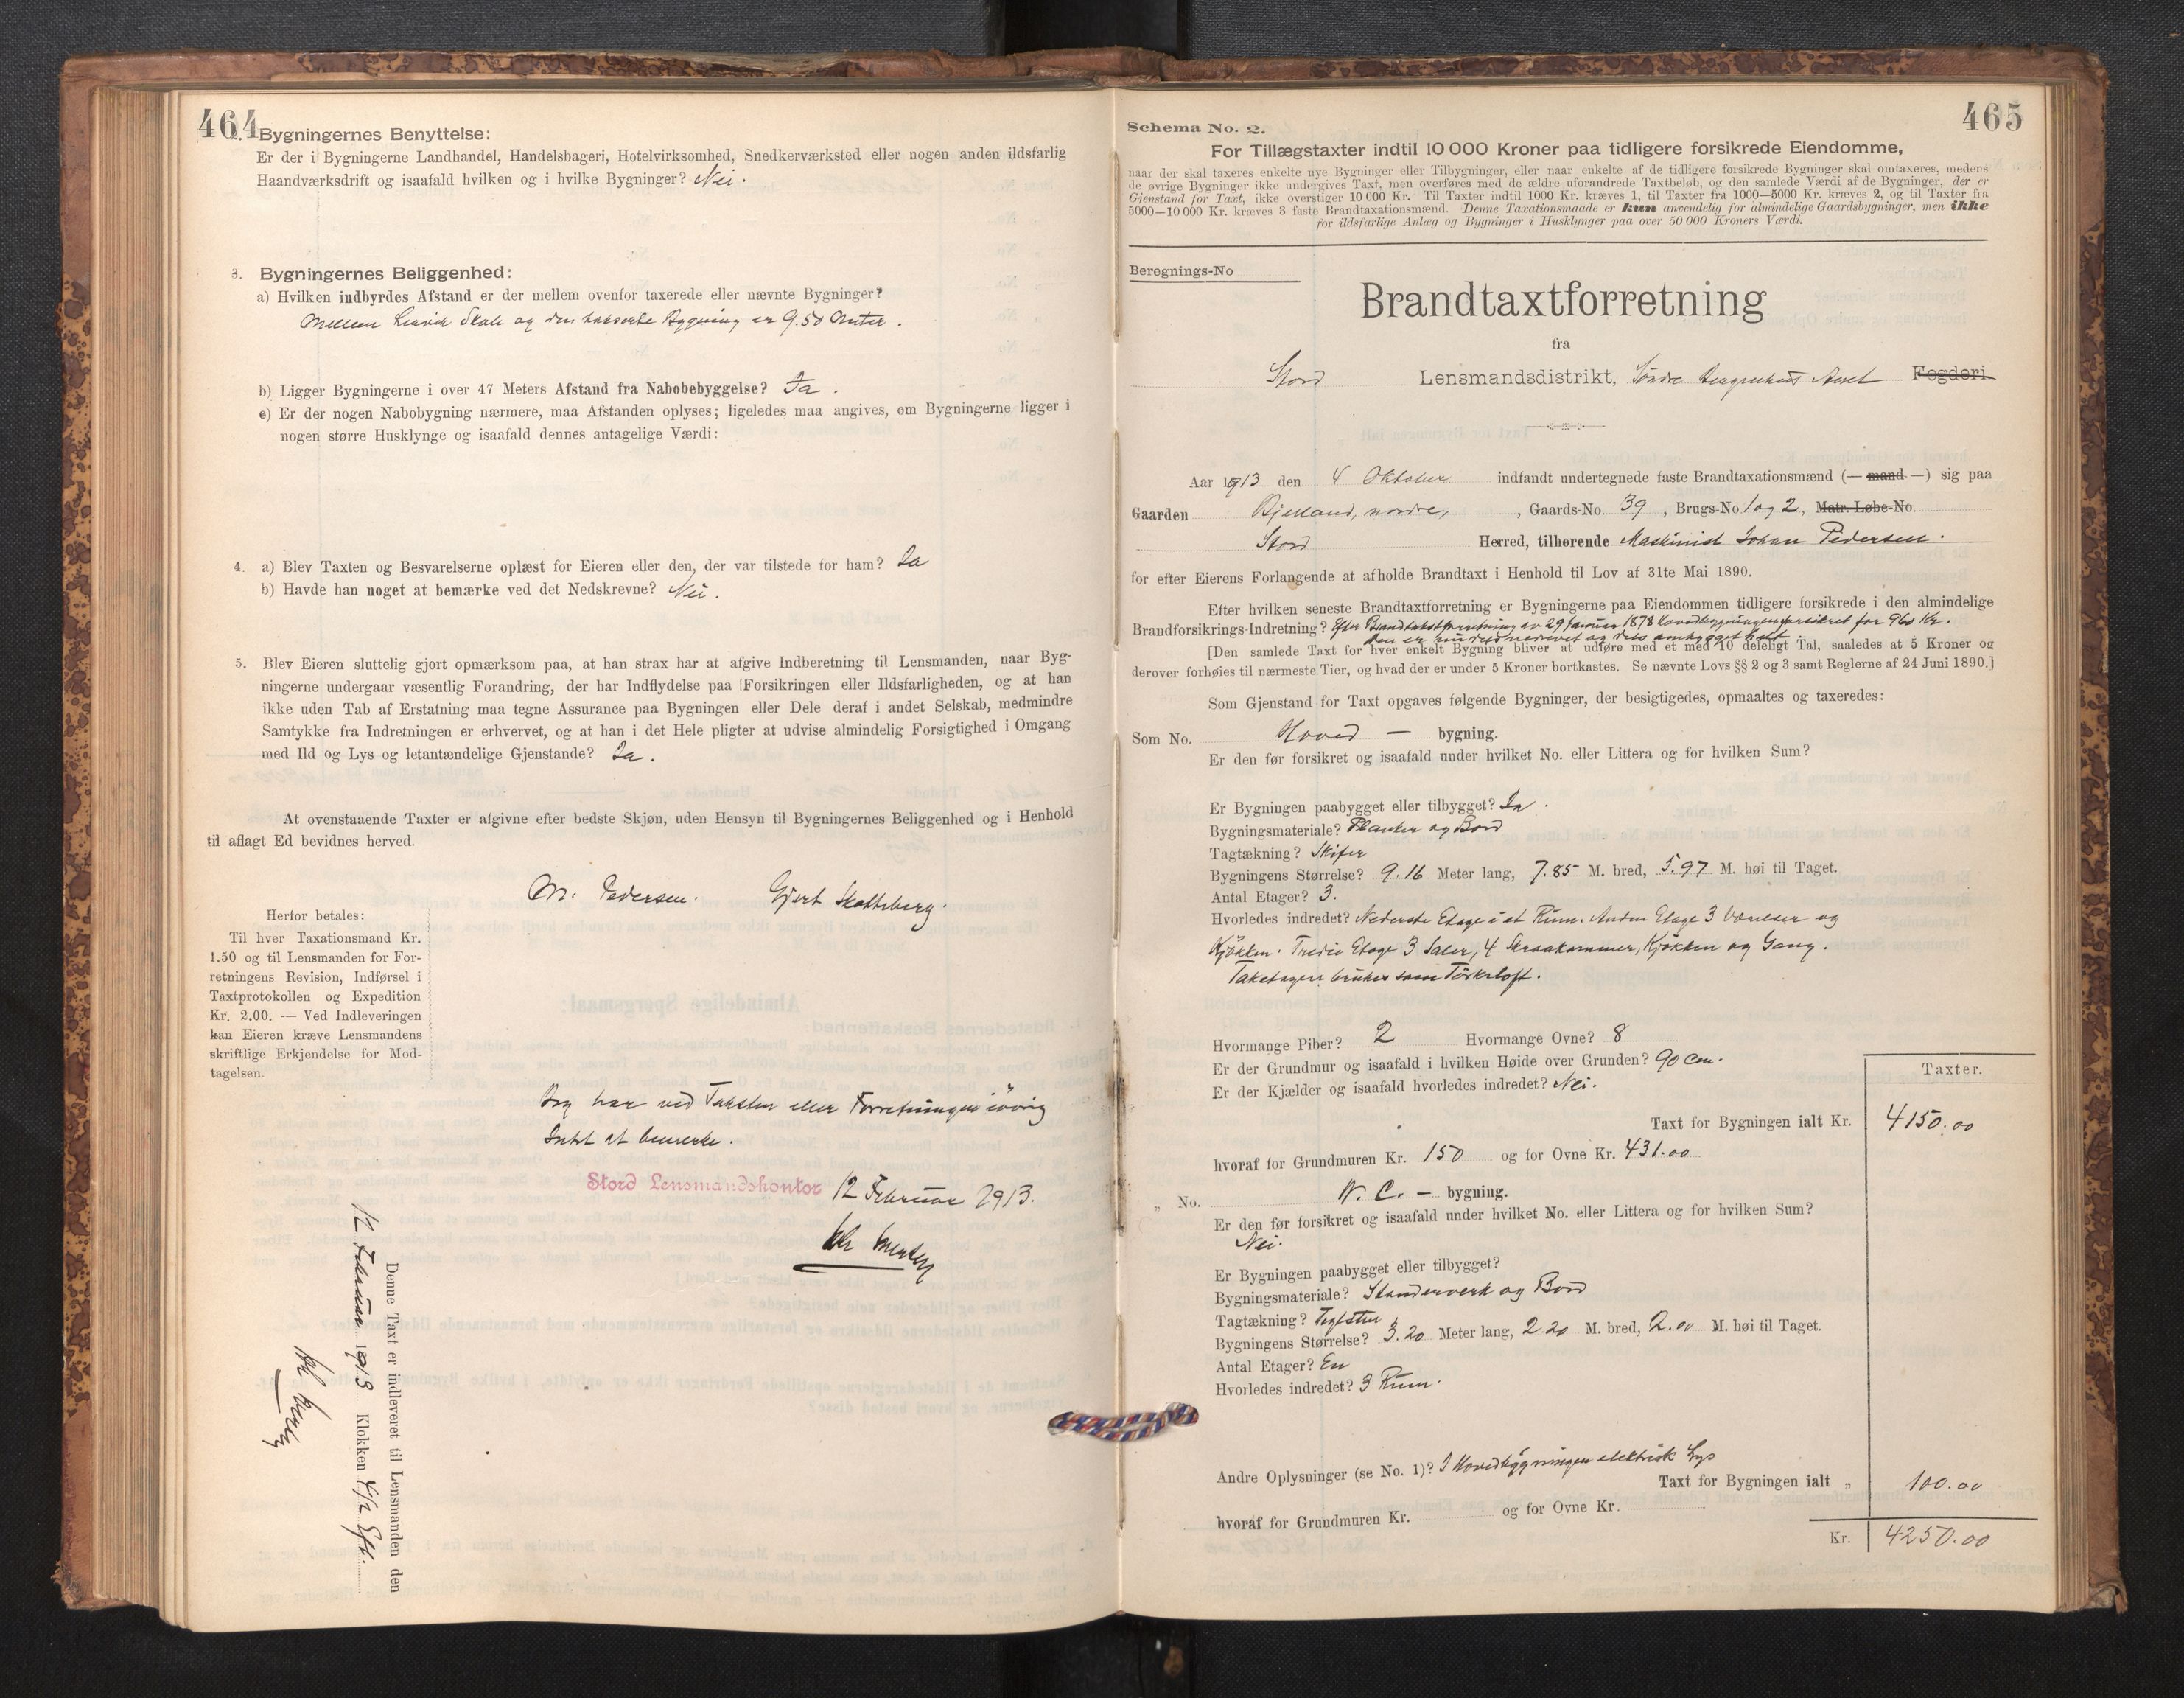 464
2. Bygningernes Benyttelse:
Er der i Bygningerne Landhandel, Handelsbageri, Hotelvirksomhed, Snedkerværksted eller nogen anden ildsfarlig
Haandværksdrift og isaafald hvilken og i hvilke Bygninger? Nei.
3. Bygningernes Beliggenhed:
a) Hvilken indbyrdes Afstand er der mellem ovenfor taxerede eller nævnte Bygninger?
Mellem Lervick Skole og den takserte Bygning er 9.50 Meter.
b) Ligger Bygningerne i over 47 Meters Afstand fra Nabobebyggelse? Ja.
c) Er der nogen Nabobygning nærmere, maa Afstanden oplyses; ligeledes maa angives, om Bygningerne ligger i
nogen større Husklynge og isaafald dennes antagelige Værdi:
4. a) Blev Taxten og Besvarelserne oplæst for Eieren eller den, der var tilstede for ham? Ja
b) Havde han noget at bemærke ved det Nedskrevne? Nei.
5. Blev Eieren sluttelig gjort opmærksom paa, at han strax har at afgive Indberetning til Lensmanden, naar Byg-
ningerne undergaar væsentlig Forandring, der har Indflydelse paa Forsikringen eller Ildsfarligheden, og at han
ikke uden Tab af Erstatning maa tegne Assurance paa Bygningen eller Dele deraf i andet Selskab, medmindre
Samtykke fra Indretningen er erhvervet, og at han i det Hele pligter at udvise almindelig Forsigtighed i Omgang
med Ild og Lys og letantændelige Gjenstande? Ja.
At ovenstaaende Taxter er afgivne efter bedste Skjøn, uden Hensyn til Bygningernes Beliggenhed og i Henhold
til aflagt Ed bevidnes herved.
M. Pedersen. Gjert Skotteberg.
Herfor betales:
Til hver Taxationsmand Kr.
1.50 og til Lensmanden for For-
retningens Revision, Indførsel i
Taxtprotokollen og Expedition
Kr. 2.00. — Ved Indleveringen
kan Eieren kræve Lensmandens
skriftlige Erkjendelse for Mod-
tagelsen.
Jeg har ved Taksten eller Forretningen iøvrig
Intet at bemerke.
Stord Lensmandskontor 12 Februar 1913.
Denne Taxt er indleveret til Lensmanden den
12 Februar 1913 Klokken 4 1/2 Eft.
465
Schema No. 2.
For Tillægstaxter indtil 10 000 Kroner paa tidligere forsikrede Eiendomme,
naar der skal taxeres enkelte nye Bygninger eller Tilbygninger, eller naar enkelte af de tidligere forsikrede Bygninger skal omtaxeres, medens
de øvrige Bygninger ikke undergives Taxt, men overføres med de ældre uforandrede Taxtbeløb, og den samlede Værdi af de Bygninger, der er
Gjenstand for Taxt, ikke overstiger 10 000 Kr. Til Taxter indtil 1000 Kr. kræves 1, til Taxter fra 1000—5000 Kr. kræves 2, og til Taxter fra
5000—10 000 Kr. kræves 3 faste Brandtaxationsmænd. Denne Taxationsmaade er kun anvendelig for almindelige Gaardsbygninger, men ikke
for ildsfarlige Anlæg og Bygninger i Husklynger paa over 50 000 Kroners Værdi.
Beregnings-No
Brandtaxtforretning
fra
Stord Lensmandsdistrikt, Søndre Bergenhus Amt Fogderi
Aar 1913 den 4 Oktober indfandt undertegnede faste Brandtaxationsmænd (— mand —) sig paa
Gaarden Bjelland, nordre, , Gaards-No. 39 , Brugs-No. 1 og 2, Matr. Løbe-No.
Stord Herred, tilhørende Maskinist Johan Pedersen.
for efter Eierens Forlangende at afholde Brandtaxt i Henhold til Lov af 31te Mai 1890.
Efter hvilken seneste Brandtaxtforretning er Bygningerne paa Eiendommen tidligere forsikrede i den almindelige
Brandforsikrings-Indretning? Efter Brandtakstforretning av 29 Januar 1878 Hovedbygningen forsikret for 960 Kr.
Den er nu dels nedrevet og dels ombygget helt.
[Den samlede Taxt for hver enkelt Bygning bliver at udføre med et med 10 deleligt Tal, saaledes at 5 Kroner og
derover forhøies til nærmeste Tier, og hvad der er under 5 Kroner bortkastes. Se nævnte Lovs §§ 2 og 3 samt Reglerne af 24 Juni 1890.]
Som Gjenstand for Taxt opgaves følgende Bygninger, der besigtigedes, opmaaltes og taxeredes:
Som No. Hoved — bygning.
Er den før forsikret og isaafald under hvilket No. eller Littera og for hvilken Sum?
Er Bygningen paabygget eller tilbygget? Ja.
Bygningsmateriale? Planker og Bord
Tagtækning? Skifer
Bygningens Størrelse? 9.16 Meter lang, 7.85 M. bred, 5.97 M. høi til Taget.
Antal Etager? 3.
Hvorledes indredet? Nederste Etage i et Rum. Anden Etage 3 Værelser og
Kjøkken. Tredie Etage 3 Saler, 4 Skraakammer, Kjøkken og Gang.
Taketagen brukes som Tørkeloft.
Hvormange Piber? 2 Hvormange Ovne? 8
Er der Grundmur og isaafald i hvilken Høide over Grunden? 90 Cm.
Er der Kjælder og isaafald hvorledes indredet? Nei.
Taxter.
Taxt for Bygningen ialt Kr. 4150.00
hvoraf for Grundmuren Kr. 150 og for Ovne Kr. 431.00
„ No. W. C. — bygning.
Er den før forsikret og isaafald under hvilket No. eller Littera og for hvilken Sum?
Nei.
Er Bygningen paabygget eller tilbygget?
Bygningsmateriale? Standerverk og Bord
Tagtækning? Teglsten
Bygningens Størrelse? 3.20 Meter lang, 2.20 M. bred, 2.00 M. høi til Taget.
Antal Etager? En
Hvorledes indredet? 3 Rum.
Andre Oplysninger (se No. 1)? I Hovedbygningen elektrisk Lys
Taxt for Bygningen ialt „ 100.00
hvoraf for Grundmuren Kr. og for Ovne Kr.
Kr. 4250.00